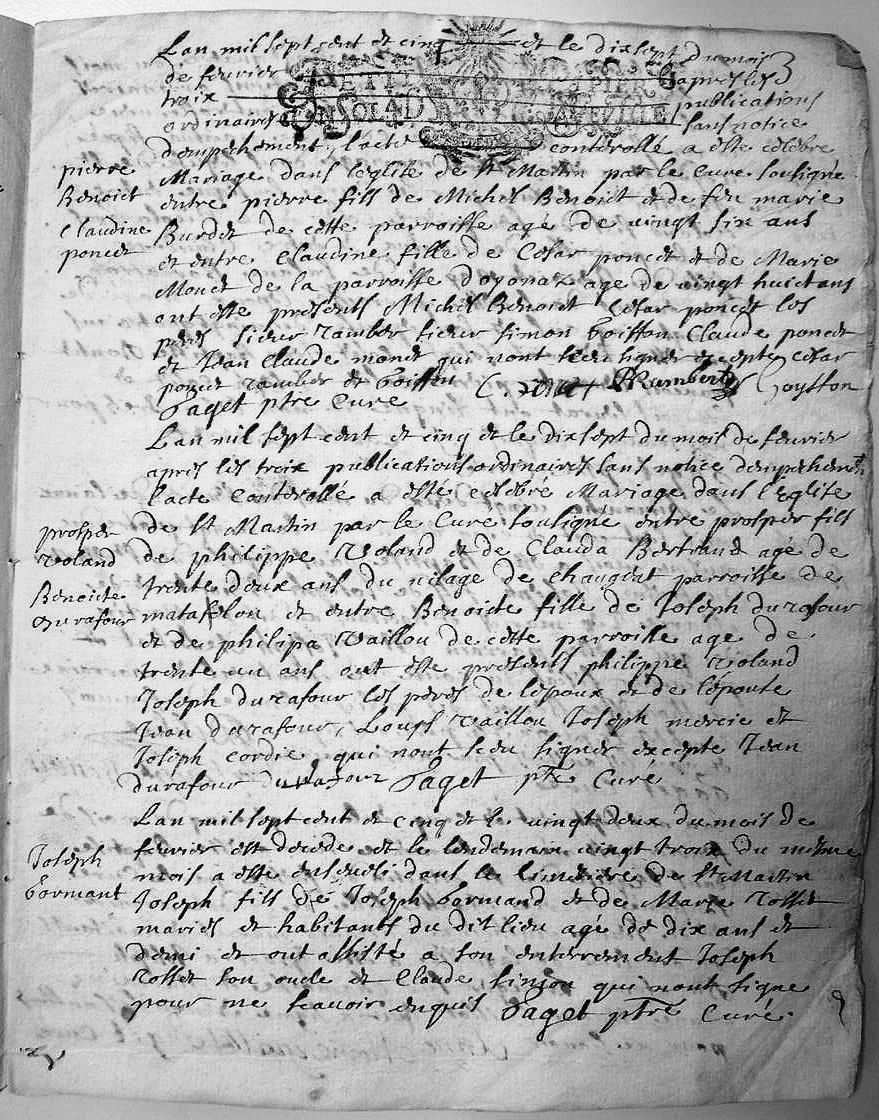 Lan mil sept cent et cinq et le dixsept du mois
de fevrier apres les
troix publications
ordinaires sans notice
dempechement, lacte contorollé a este celebre
pierre
Benoict
Claudine
poncet
Mariage dans leglise de st Martin par le Cure soubsigné
entre pierre fils de Michel Benoict et de feu marie
Burdet de cette parroisse agé de vingt six ans
et entre Claudine fille de Cesar poncet et de Marie
Monet de la parroisse doyonax age de vingt huict ans
ont este presents Michel Benoict Cesar poncet les
peres sieur rambert sieur simon Goiffon Claude poncet
et Jean Claude monet qui nont sceu signer excepte cesar
poncet rambert et Goiffon C. poncet PRambert Goyffon
Paget ptre Cure
Lan mil sept cent et cinq et le dixsept du mois de fevrier
apres les troix publications ordinaires sans notice dempechement
lacte contorollé a esté celebré Mariage dans l'Eglise
prosper
Roland
Benoicte
durafour
de st Martin par le Cure soubsigné entre prosper fils
de philippe Roland et de Clauda Bertrand agé de
trente deux ans du vilage de changeat parroisse de
matafelon et entre Benoicte fille de Joseph durafour
et de philipa Vaillou de cette parroisse age de
trente un ans ont este presents philippe Roland
Joseph durafour les peres de lepoux et de lépouse
Jean durafour, Louys vaillou Joseph mercie et
Joseph cordie qui nont sceu signer excepte Jean
durafour durafour Paget ptre Curé
Lan mil sept cent et cinq et le vingt deux du mois de
Joseph
Gormant
fevrier est decede et le lendemain vingt troix du mesme
mois a este enseveli dans le cimetiere de st Martin
Joseph fils de Joseph Gormand et de Marie rosset
maries et habitants du dit lieu agé de dix ans et
demi et ont assisté a son enterrement Joseph
rosset son oncle et Claude simon qui nont signe
pour ne scavoir enquis Paget ptre Curé